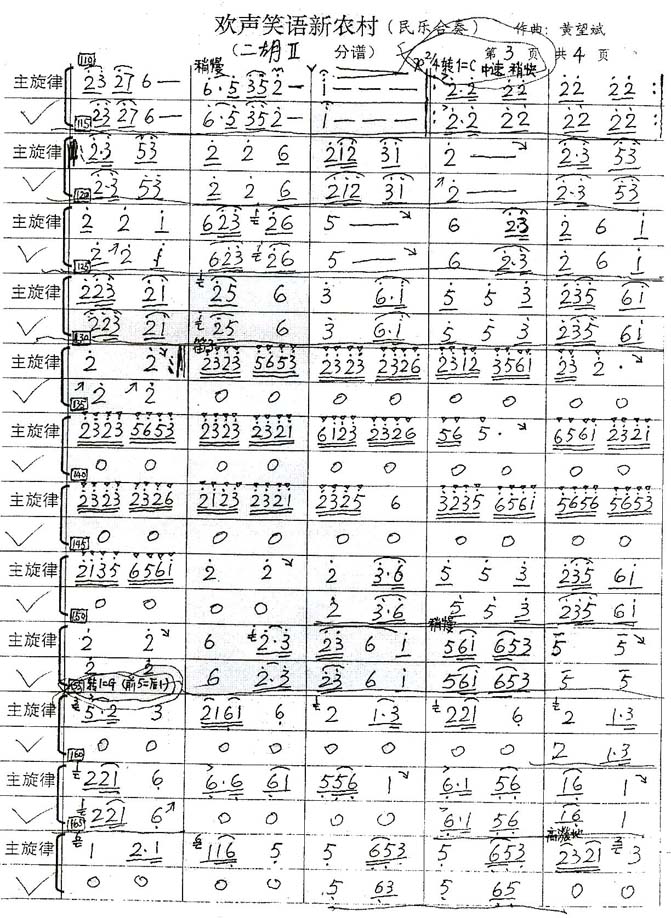 欢声笑语新农村（民乐合奏） 作曲：黄望斌
（二胡Ⅱ 分谱） 2/4 转1=C 中速 稍快 第3页 共4页
110 稍慢
主旋律 23 27 6 — 6·5 352 — i — — — 2·2 22 22 22
23 27 6 — 6·5 352 — i — — — 2·2 22 22 22
115
主旋律 2·3 53 2 2 6 212 31 2 — 2·3 53
2·3 53 2 2 6 212 31 2 — 2·3 53
120
主旋律 2 2 1 623 26 5 — 6 2·3 2 6 i
2 2 1 623 26 5 — 6 2·3 2 6 i
125
主旋律 223 21 25 6 3 6·i 5 5 3 235 6i
223 21 25 6 3 6·i 5 5 3 235 6i
130
主旋律 2 2 2323 5653 2323 2326 2312 3561 23 2·
2 2 0 0 0 0 0 0 0 0
135
主旋律 2323 5653 2323 2321 6123 2326 56 5· 6561 2321
0 0 0 0 0 0 0 0 0 0
140
主旋律 2323 2326 2123 2321 2325 6 3235 6561 5656 5653
0 0 0 0 0 0 0 0 0 0
145
主旋律 2135 6561 2 2 2 3·6 5 5 3 235 6i
0 0 0 0 2 3·6 5 5 3 235 6i
150 稍慢
主旋律 2 2 6 2·3 23 6 i 56i 653 5 5
2 2 6 2·3 23 6 i 56i 653 5 5
155 转1=G（前5=后1）
主旋律 5·2 3 2161 6 2 1·3 221 6 2 1·3
0 0 0 0 0 0 0 0 2 1·3
160
主旋律 221 6 6·6 61 556 1 6·1 56 16 1
221 6 0 0 0 0 6·1 56 16 1
165 高激地
主旋律 1 2·1 116 5 5 653 5 653 2321 3
0 0 0 0 5 63 5 65 0 0